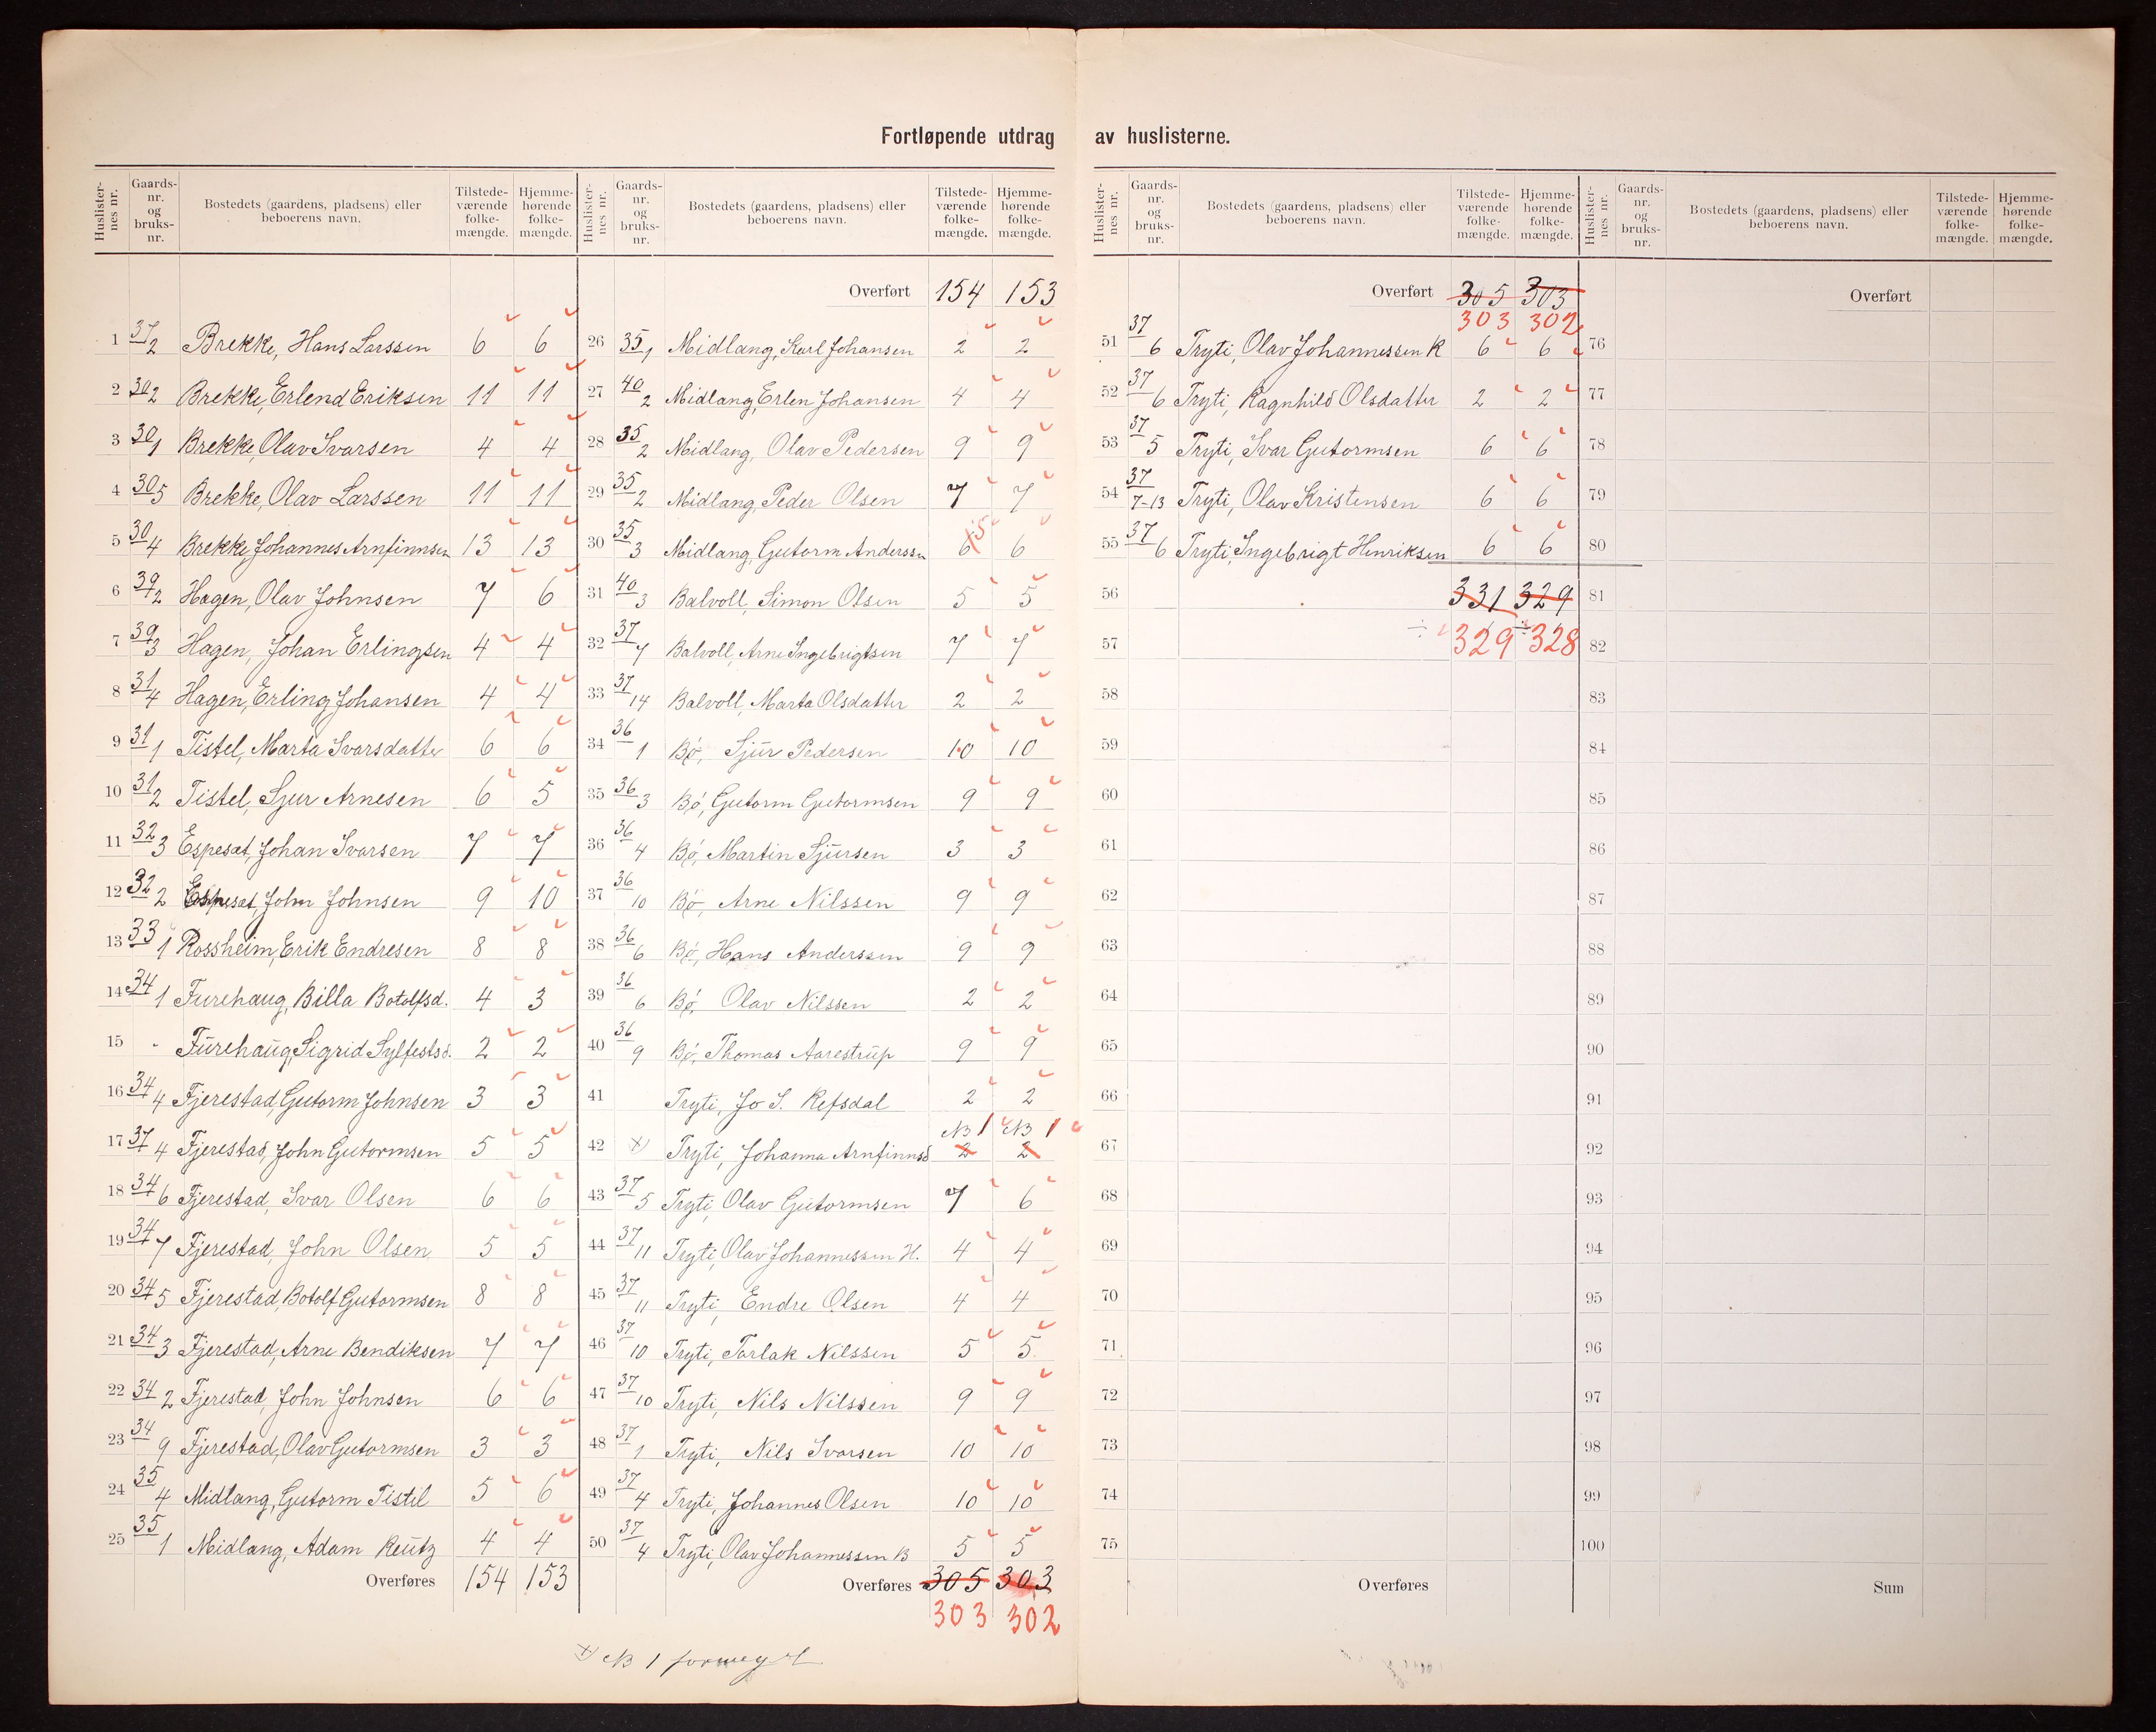 Fortløpende utdrag av huslisterne.
Huslister-nes nr. Gaards-nr. og bruks-nr. Bostedets (gaardens, pladsens) eller beboerens navn. Tilstede-værende folke-mængde. Hjemme-hørende folke-mængde.
1 37/2 Brekke, Hans Larssen 6 6
2 30/2 Brekke, Erlend Eriksen 11 11
3 30/1 Brekke, Olav Ivarsen 4 4
4 30/5 Brekke, Olav Larssen 11 11
5 30/4 Brekke, Johannes Arnfinnsen 13 13
6 39/2 Hagen, Olav Johnsen 7 6
7 39/3 Hagen, Johan Erlingsen 4 4
8 31/4 Hagen, Erling Johansen 4 4
9 31/1 Tistel, Marta Ivarsdatter 6 6
10 31/2 Tistel, Sjur Arnesen 6 5
11 32/3 Espeset, Johan Ivarsen 7 7
12 32/2 Espeset, John Johnsen 9 10
13 33/1 Rossheim, Erik Endresen 8 8
14 34/1 Furehaug, Billa Botolfsd. 4 3
15 - Furehaug, Sigrid Sylfestsd. 2 2
16 34/4 Fjerestad, Gutorm Johnsen 3 3
17 37/4 Fjerestad, John Gutormsen 5 5
18 34/6 Fjerestad, Ivar Olsen 6 6
19 34/7 Fjerestad, John Olsen 5 5
20 34/5 Fjerestad, Botolf Gutormsen 8 8
21 34/3 Fjerestad, Arne Bendiksen 7 7
22 34/2 Fjerestad, John Johnsen 6 6
23 34/9 Fjerestad, Olav Gutormsen 3 3
24 35/4 Midlang, Gutorm Tistil 5 6
25 35/1 Midlang, Adam Reutz 4 4
Overføres 154 153
Huslister-nes nr. Gaards-nr. og bruks-nr. Bostedets (gaardens, pladsens) eller beboerens navn. Tilstede-værende folke-mængde. Hjemme-hørende folke-mængde.
Overført 154 153
26 35/1 Midlang, Karl Johansen 2 2
27 40/2 Midlang, Erlen Johansen 4 4
28 35/2 Midlang, Olav Pedersen 9 9
29 35/2 Midlang, Peder Olsen 7 7
30 35/3 Midlang, Gutorm Anderssen 6 5 6
31 40/3 Balvoll, Simon Olsen 5 5
32 37/7 Balvoll, Arne Ingebrigtsen 7 7
33 37/14 Balvoll, Marta Olsdatter 2 2
34 36/1 Bø, Sjur Pedersen 10 10
35 36/3 Bø, Gutorm Gutormsen 9 9
36 36/4 Bø, Martin Sjursen 3 3
37 36/10 Bø, Arne Nilssen 9 9
38 36/6 Bø, Hans Anderssen 9 9
39 36/6 Bø, Olav Nilssen 2 2
40 36/9 Bø, Thomas Aarestrup 9 9
41 Tryti, Jo S. Refsdal 2 2
NB 1 NB 1
42 x) Tryti, Johanna Arnfinnsd 2 2
43 37/5 Tryti, Olav Gutormsen 7 6
44 37/11 Tryti, Olav Johannessen H. 4 4
45 37/11 Tryti, Endre Olsen 4 4
46 37/10 Tryti, Torlak Nilssen 5 5
47 37/10 Tryti, Nils Nilssen 9 9
48 37/1 Tryti, Nils Ivarsen 10 10
49 37/4 Tryti, Johannes Olsen 10 10
50 37/4 Tryti, Olav Johannessen B 5 5
Overføres 305 303
303 302
x) NB 1 formeget
Huslister-nes nr. Gaards-nr. og bruks-nr. Bostedets (gaardens, pladsens) eller beboerens navn. Tilstede-værende folke-mængde. Hjemme-hørende folke-mængde.
Overført 305 303
303 302
51 37/6 Tryti, Olav Johannessen K 6 6
52 37/6 Tryti, Ragnhild Olsdatter 2 2
53 37/5 Tryti, Ivar Gutormsen 6 6
54 37/7-13 Tryti, Olav Kristensen 6 6
55 37/6 Tryti, Ingebrigt Henriksen 6 6
56 331 329
57 329 328
58
59
60
61
62
63
64
65
66
67
68
69
70
71
72
73
74
75
Overføres
Huslister-nes nr. Gaards-nr. og bruks-nr. Bostedets (gaardens, pladsens) eller beboerens navn. Tilstede-værende folke-mængde. Hjemme-hørende folke-mængde.
Overført
76
77
78
79
80
81
82
83
84
85
86
87
88
89
90
91
92
93
94
95
96
97
98
99
100
Sum